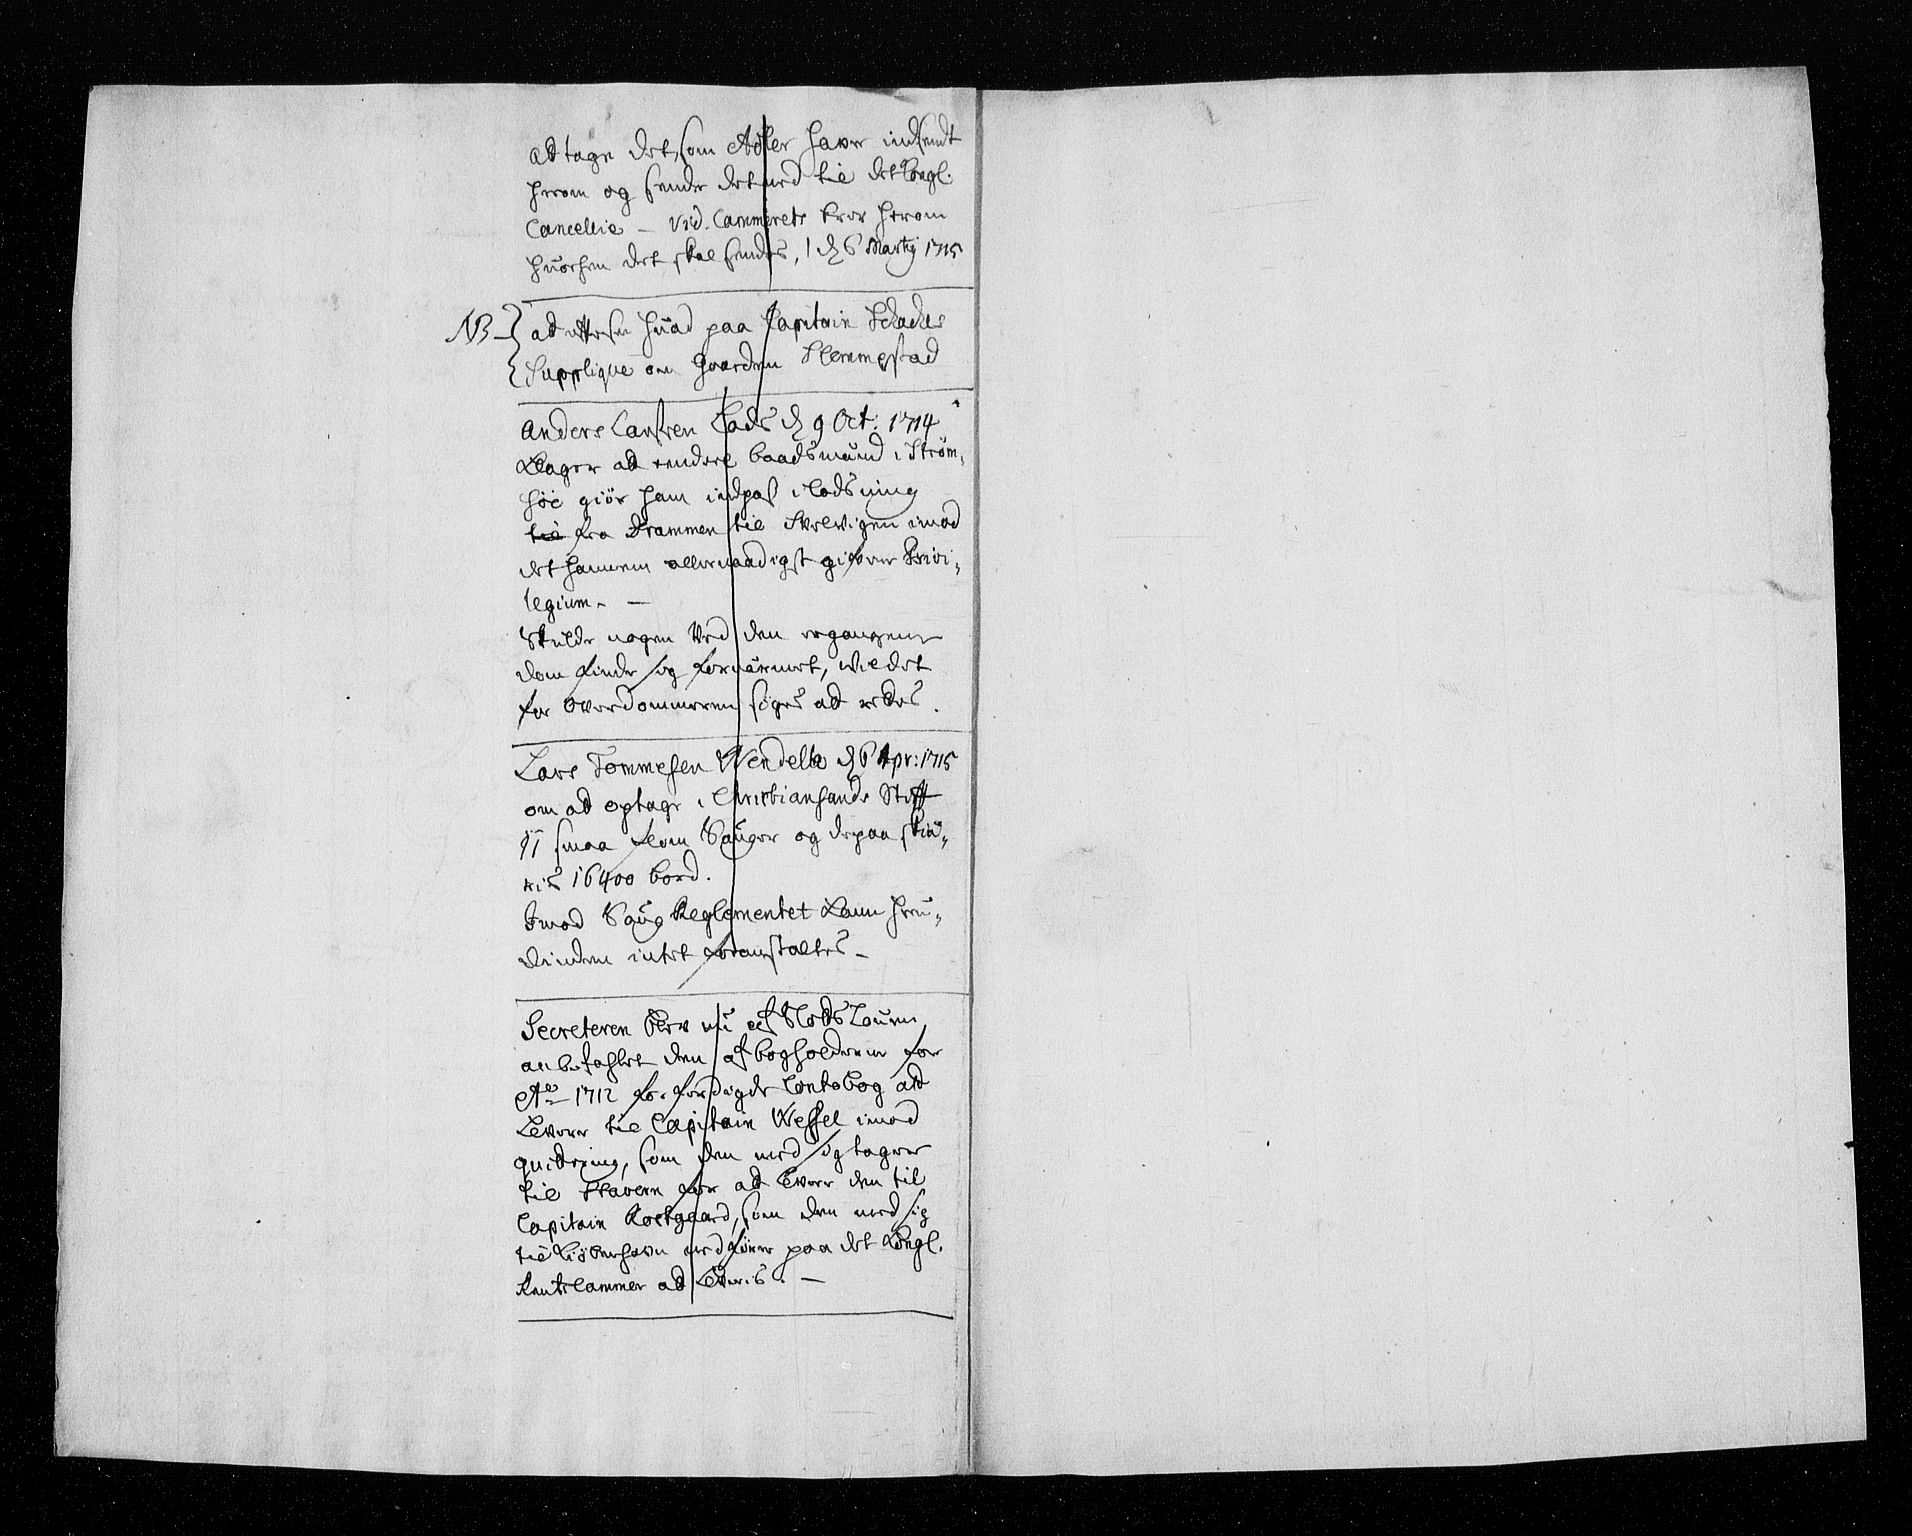 at tage det, som Adler haver indsendt
herom og sende det ned til det Kongl.
Cancellie – Vid. Cammerets brev herom
hvorhen det skal sendes, / d 6 Martij 1715
NB – ad eftersee hvad paa Capitain Schackes
Supplique om Gaarden Klemmestad
Anders Larsen Lods d 9 Oct: 1714
Klager at endeel baadsmænd i Ström,,
söe giör ham indpas i lodsning
til fra Drammen til Svelvigen imod
det hannem allernaadigst gifvne Privi,,
legium. –
Skulde nogen Ved den ergangene
dom finde sig fornærmet, vil det
for Overdommeren söges at rettes.
Lars Tommesen Wendelbo d 6 Apr: 1715
om at optage i Christiansands Stift
11 smaa flom Sauger og derpaa skiæ,,
ris 16400 bord.
Imod Saug Reglementet kan heru,,
dinden intet foranstaltes –
Secreteren blev nu af Slots Loven
anbefahlet den af bogholderne for
Ao 1712 forfærdigde Contobog at
Levere til Capitain Wessel imod
qvittering, som den med sig tager
til Stavern for at levere den til
Capitain Rostgaard, som den med sig
til Kiöbenhavn nedförer paa det Kongl.
Rentecammer at leveris. –